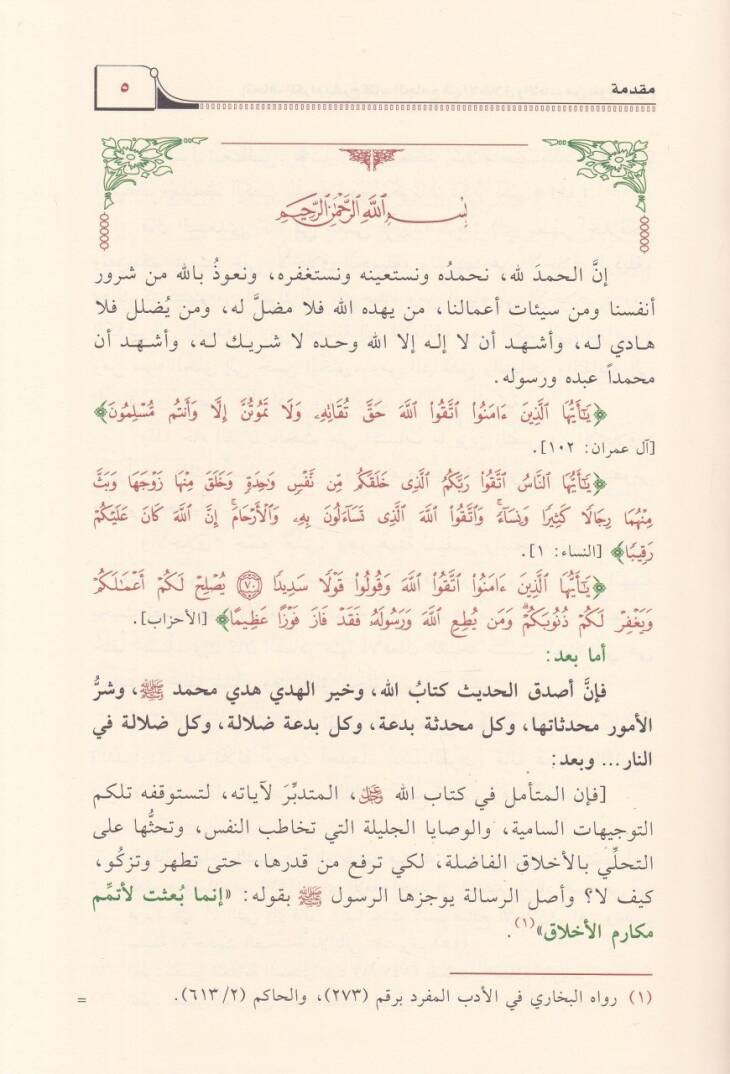 مقدمة
٥
بِسْمِ ٱللَّهِ ٱلرَّحْمَٰنِ ٱلرَّحِيمِ
إنَّ الحمدَ لله، نحمدُه ونستعينه ونستغفره، ونعوذُ بالله من شرور
أنفسنا ومن سيئات أعمالنا، من يهده الله فلا مضلَّ له، ومن يُضلل فلا
هادي له، وأشهد أن لا إله إلا الله وحده لا شريك له، وأشهد أن
محمداً عبده ورسوله.
﴿يَٰٓأَيُّهَا ٱلَّذِينَ ءَامَنُوا۟ ٱتَّقُوا۟ ٱللَّهَ حَقَّ تُقَاتِهِۦ وَلَا تَمُوتُنَّ إِلَّا وَأَنتُم مُّسْلِمُونَ﴾
[آل عمران: ١٠٢].
﴿يَٰٓأَيُّهَا ٱلنَّاسُ ٱتَّقُوا۟ رَبَّكُمُ ٱلَّذِى خَلَقَكُم مِّن نَّفْسٍ وَٰحِدَةٍ وَخَلَقَ مِنْهَا زَوْجَهَا وَبَثَّ
مِنْهُمَا رِجَالًا كَثِيرًا وَنِسَآءً ۚ وَٱتَّقُوا۟ ٱللَّهَ ٱلَّذِى تَسَآءَلُونَ بِهِۦ وَٱلْأَرْحَامَ ۚ إِنَّ ٱللَّهَ كَانَ عَلَيْكُمْ
رَقِيبًا﴾ [النساء: ١].
﴿يَٰٓأَيُّهَا ٱلَّذِينَ ءَامَنُوا۟ ٱتَّقُوا۟ ٱللَّهَ وَقُولُوا۟ قَوْلًا سَدِيدًا ٧٠ يُصْلِحْ لَكُمْ أَعْمَٰلَكُمْ
وَيَغْفِرْ لَكُمْ ذُنُوبَكُمْ ۗ وَمَن يُطِعِ ٱللَّهَ وَرَسُولَهُۥ فَقَدْ فَازَ فَوْزًا عَظِيمًا﴾ [الأحزاب].
أما بعد:
فإنَّ أصدق الحديث كتابُ الله، وخير الهدي هدي محمد ﷺ، وشرُّ
الأمور محدثاتها، وكل محدثة بدعة، وكل بدعة ضلالة، وكل ضلالة في
النار... وبعد:
[فإن المتأمل في كتاب الله عَزَّ وَجَلَّ، المتدبِّرَ لآياته، لتستوقفه تلكم
التوجيهات السامية، والوصايا الجليلة التي تخاطب النفس، وتحثُّها على
التحلِّي بالأخلاق الفاضلة، لكي ترفع من قدرها، حتى تطهر وتزكُو،
كيف لا؟ وأصل الرسالة يوجزها الرسول ﷺ بقوله: «إنما بُعثت لأتمِّم
مكارم الأخلاق»(١).
(١) رواه البخاري في الأدب المفرد برقم (٢٧٣)، والحاكم (٦١٣/٢).
=